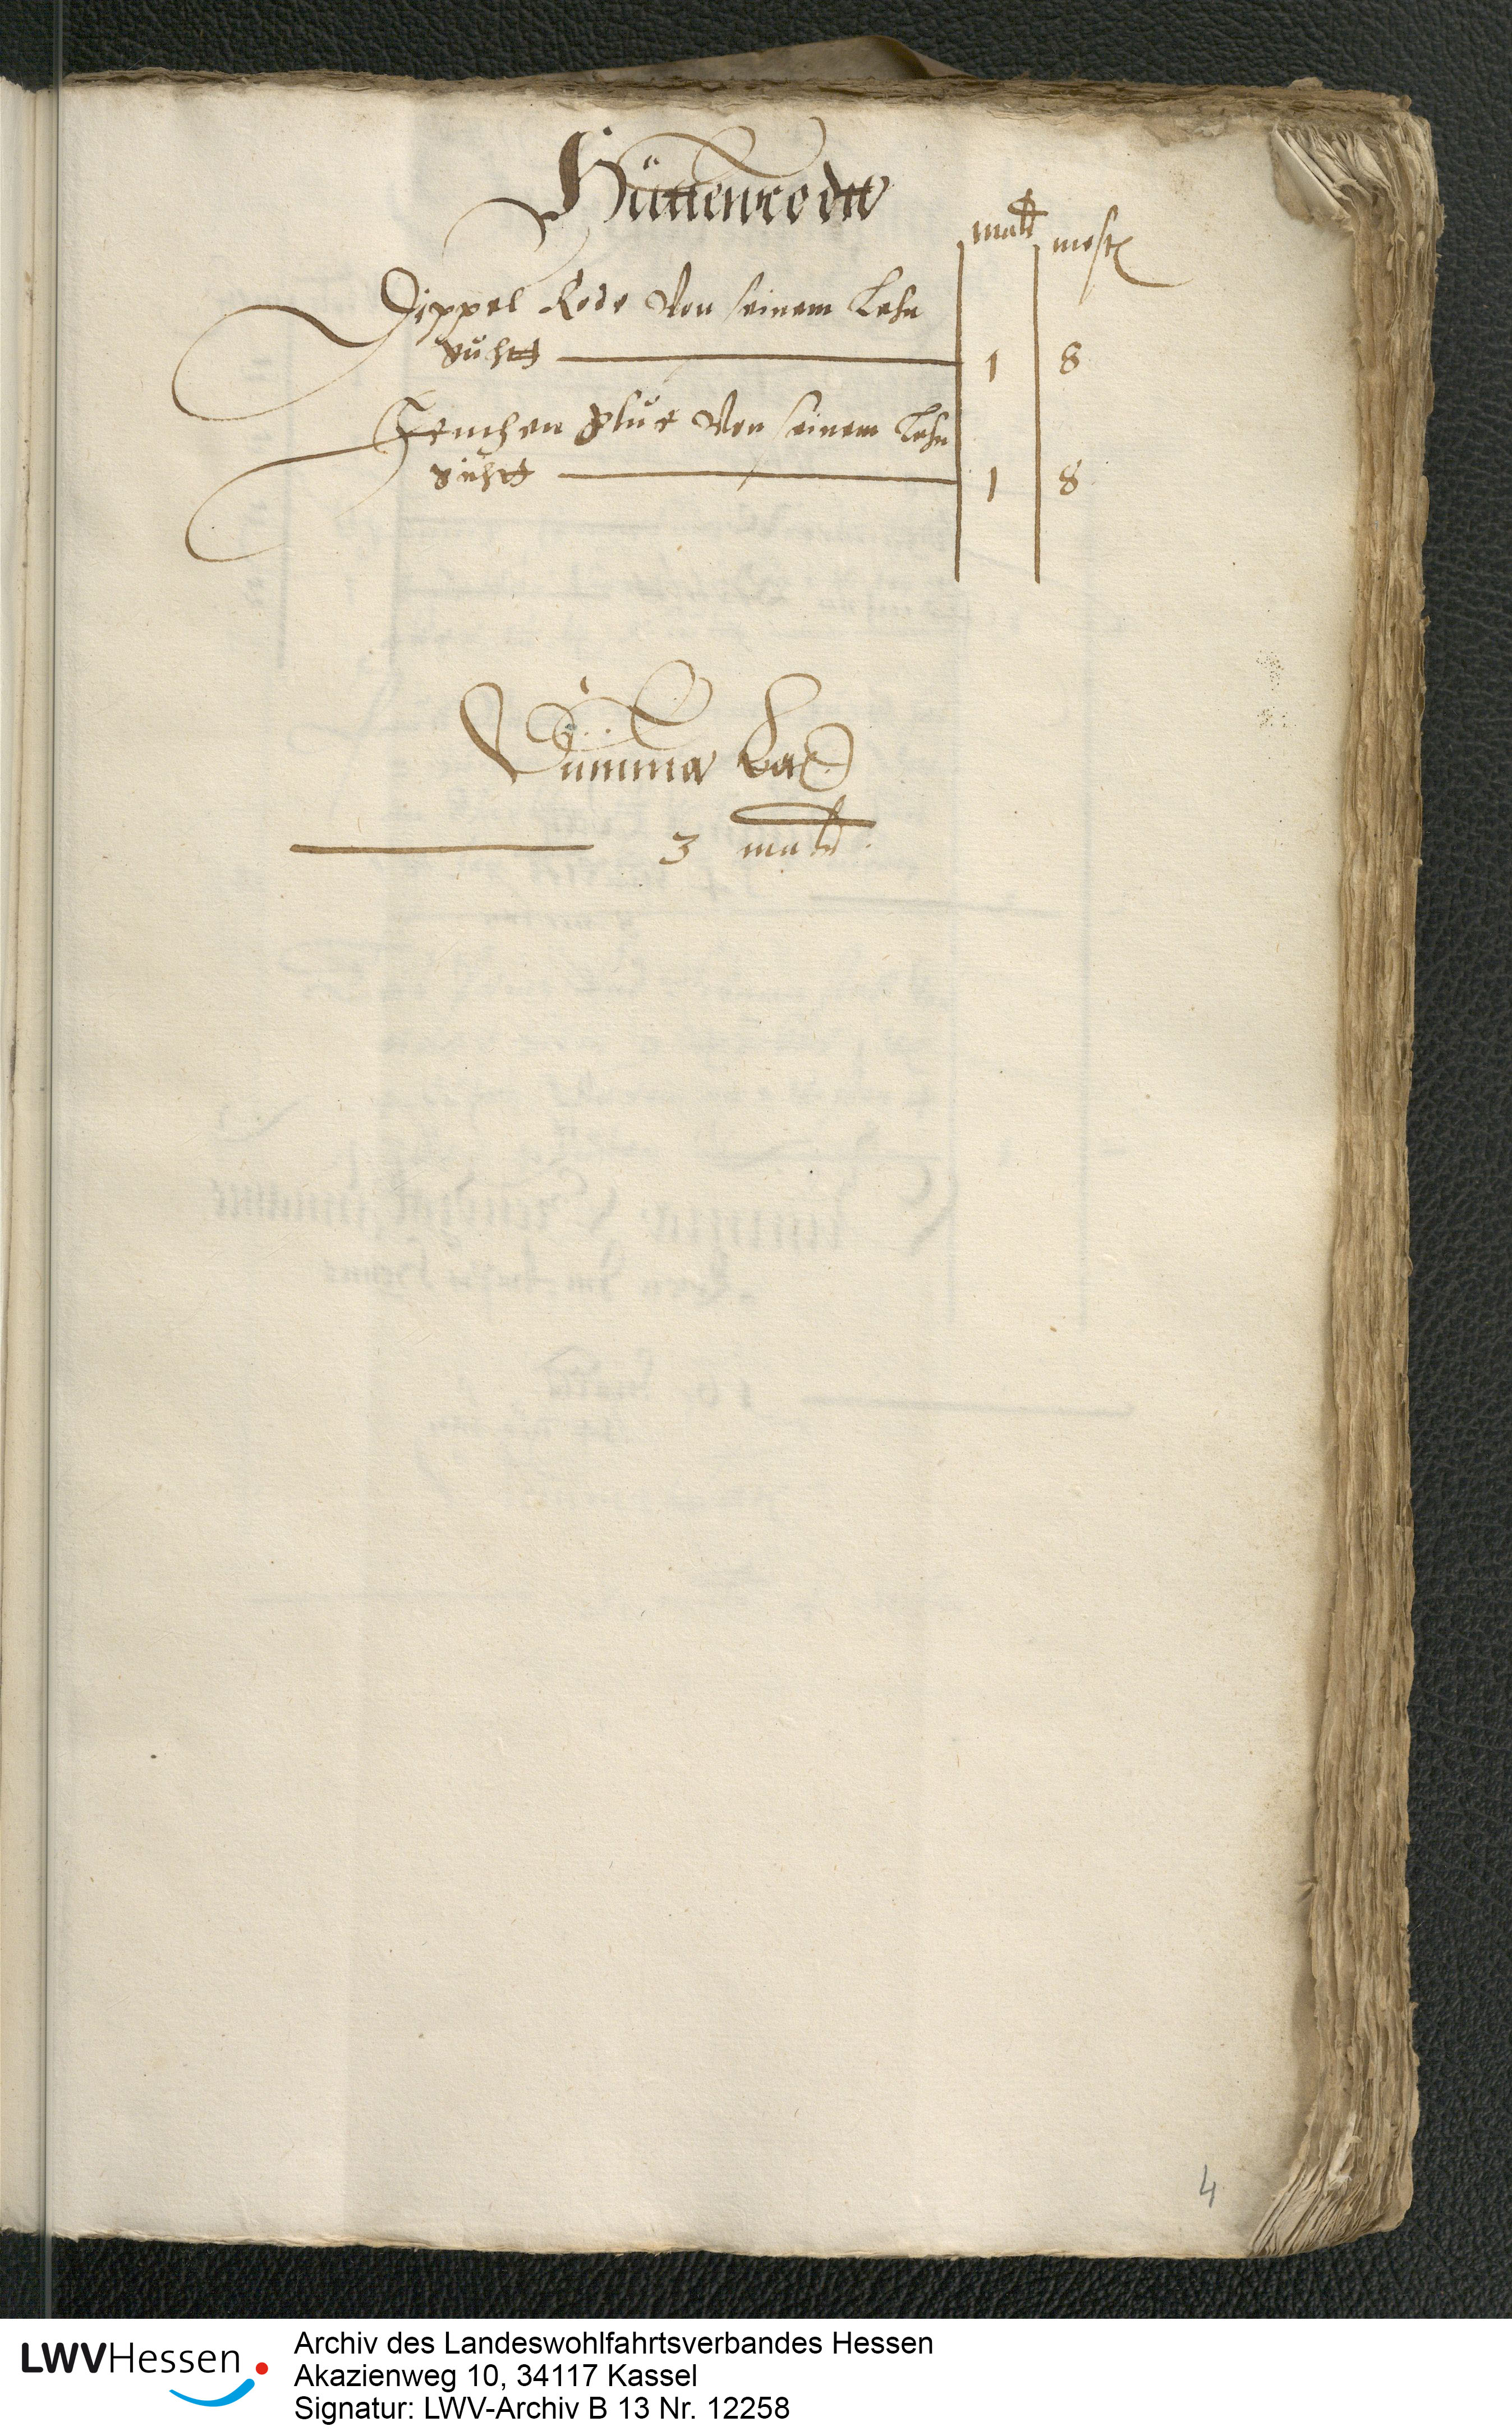 Hüttenrodtt
malt mest
Dippel Rode von seinem Lehn
guhtt 1 8
Henchen von seinem Lehn
guhtt 1 8
Summa
3 malt
4
LWVHessen
Archiv des Landeswohlfahrtsverbandes Hessen
Akazienweg 10, 34117 Kassel
Signatur: LWV-Archiv B 13 Nr. 12258